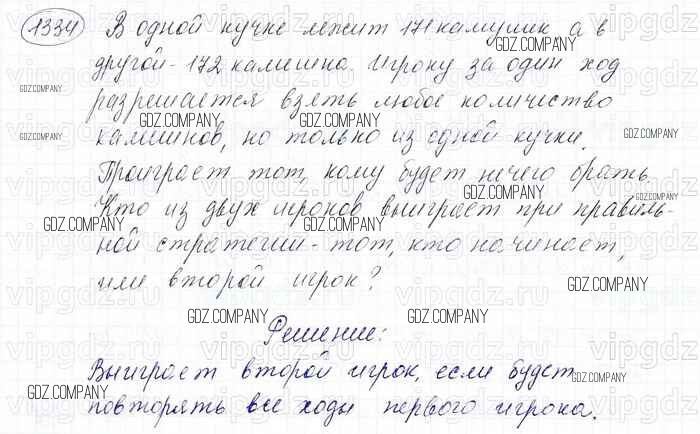 1334 В одной кучке лежит 171 камушек, а в
другой - 172 камешка. Игроку за один ход
разрешается взять любое количество
камешков, но только из одной кучки.
Проиграет тот, кому будет нечего брать.
Кто из двух игроков выиграет при правиль-
ной стратегии - тот, кто начинает,
или второй игрок?
Решение:
Выиграет второй игрок, если будет
повторять все ходы первого игрока.
GDZ.COMPANY
vipgdz.ru